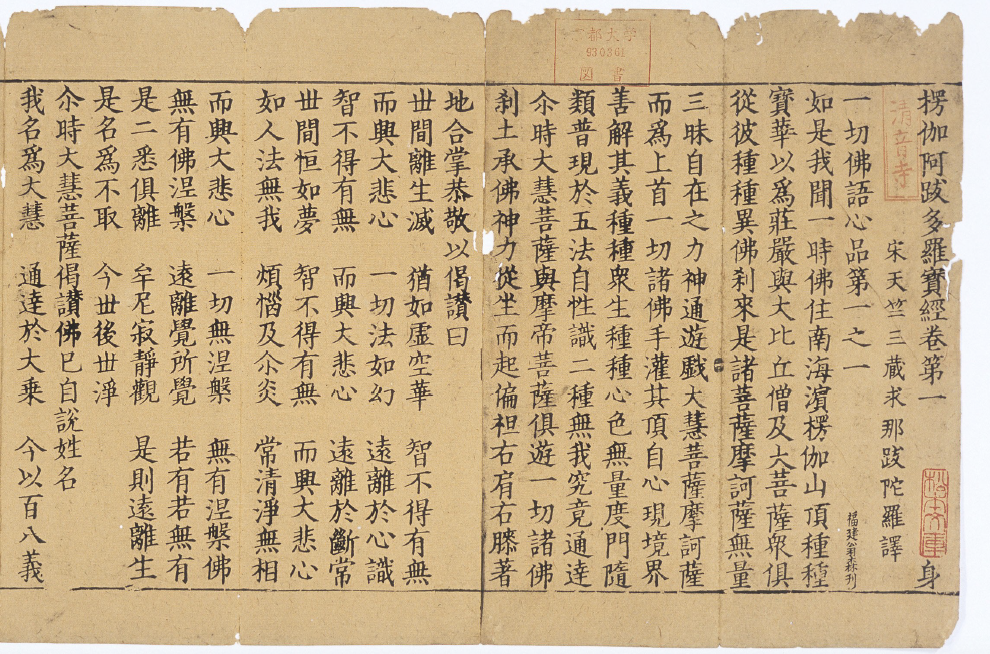 楞伽阿跋多羅寶經卷第一
身
宋天竺三藏求那跋陀羅譯
一切佛語心品第一之一
福建翁森刊
如是我聞一時佛住南海濵楞伽山頂種種
寶華以爲莊嚴與大比丘僧及大菩薩衆俱
從彼種種異佛刹來是諸菩薩摩訶薩無量
三昧自在之力神通遊戲大慧菩薩摩訶薩
而爲上首一切諸佛手灌其頂自心現境界
善解其義種種衆生種種心色無量度門隨
類普現於五法自性識二種無我究竟通達
尒時大慧菩薩與摩帝菩薩俱遊一切諸佛
刹土承佛神力從坐而起偏袒右肩右膝著
地合掌恭敬以偈讃曰
世間離生滅 猶如虛空華 智不得有無
而興大悲心 一切法如幻 遠離於心識
智不得有無 而興大悲心 遠離於斷常
世間恒如夢 智不得有無 而興大悲心
如人法無我 煩惱及尒炎 常清淨無相
而興大悲心 一切無涅槃 無有涅槃佛
無有佛涅槃 遠離覺所覺 若有若無有
是二悉俱離 牟尼寂靜觀 是則遠離生
是名爲不取 今世後世淨
尒時大慧菩薩偈讃佛已自說姓名
我名爲大慧 通達於大乘 今以百八義
清音寺
都大学
930361
図書